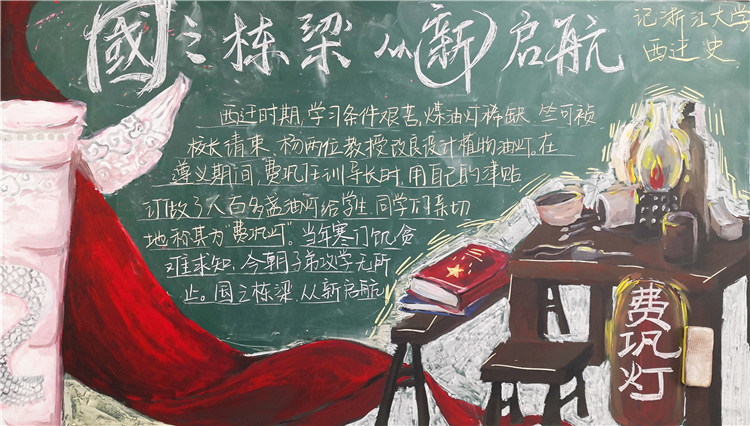 國之栋梁 从新启航
记浙江大学
西迁史
西迁时期,学习条件艰苦,煤油灯稀缺.竺可桢
校长请束、杨两位教授改良设计植物油灯。在
遵义期间,费巩任训导长时,用自己的津贴
订做了八百多盏油灯给学生.同学们亲切
地称其为"费巩灯"。当年寒门饥食
难求知.今朝子弟攻学无所
止。国之栋梁,从新启航
费巩灯